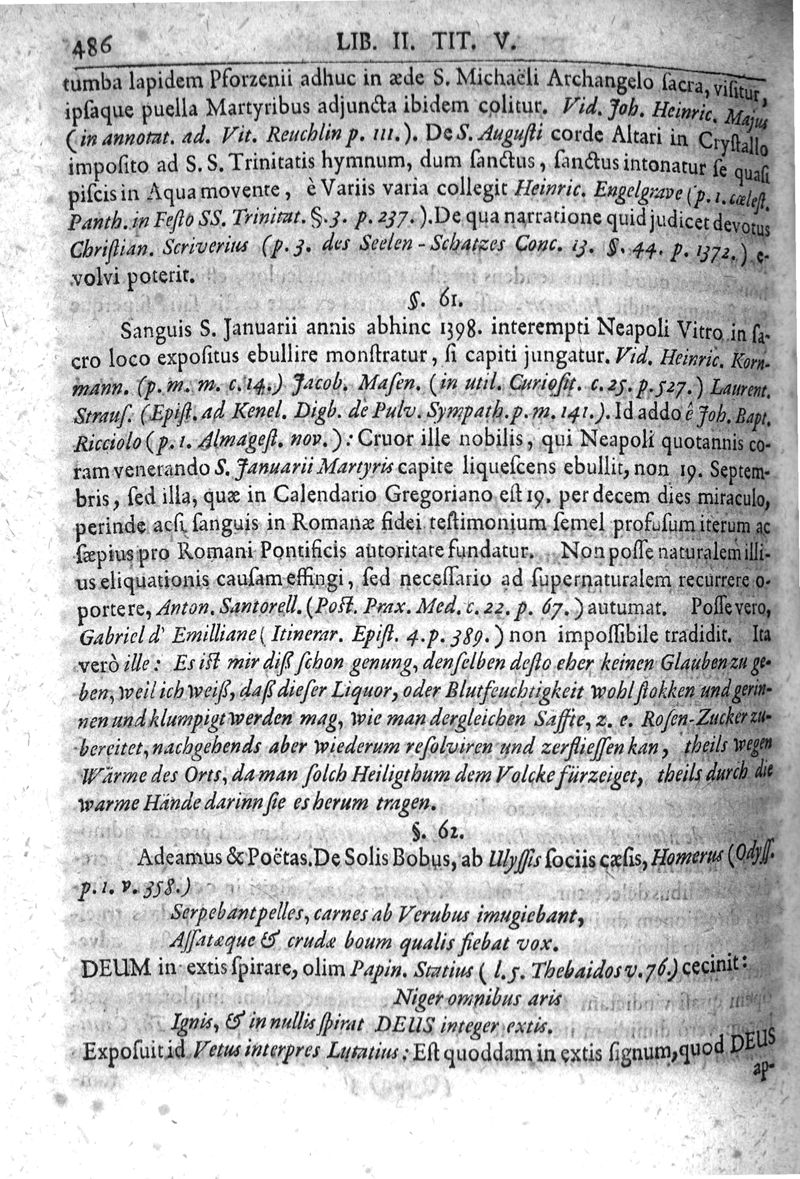 486 LIB. II. TIT. V.
tumba lapidem Pforzenii adhuc in æde S. Michaëli Archangelo ſacra, viſitur,
ipſaque puella Martyribus adjuncta ibidem colitur. Vid. Joh. Heinric. Majus
(in annotat. ad. Vit. Reuchlin p. 111.). De S. Auguſti corde Altari in Cryſtallo
impoſito ad S. S. Trinitatis hymnum, dum ſanctus, ſanctus intonatur ſe quaſi
piſcis in Aqua movente, è Variis varia collegit Heinric. Engelgrave (p. 1. cæleſt.
Panth. in Feſto SS. Trinitat. §. 3. p. 237.). De qua narratione quid judicet devotus
Chriſtian. Scriverius (p. 3. des Seelen-Schatzes Conc. 13. §. 44. p. 1372.) e-
volvi poterit.
§. 61.
Sanguis S. Januarii annis abhinc 1398. interempti Neapoli Vitro in ſa-
cro loco expoſitus ebullire monſtratur, ſi capiti jungatur. Vid. Heinric. Korn-
mann. (p. m. m. c. 14.) Jacob. Maſen. (in util. Curioſit. c. 25. p. 527.) Laurent.
Strauſ. (Epiſt. ad Kenel. Digb. de Pulv. Sympath. p. m. 141.). Id addo è Joh. Bapt.
Ricciolo (p. 1. Almageſt. nov.): Cruor ille nobilis, qui Neapoli quotannis co-
ram venerando S. Januarii Martyris capite liqueſcens ebullit, non 19. Septem-
bris, ſed illa, quæ in Calendario Gregoriano eſt 19. per decem dies miraculo,
perinde acſi ſanguis in Romanæ fidei teſtimonium ſemel profuſum iterum ac
ſæpius pro Romani Pontificis autoritate fundatur. Non poſſe naturalem illi-
us eliquationis cauſam effingi, ſed neceſſario ad ſupernaturalem recurrere o-
portere, Anton. Santorell. (Poſt. Prax. Med. c. 22. p. 67.) autumat. Poſſe vero,
Gabriel d' Emilliane (Itinerar. Epiſt. 4. p. 389.) non impoſſibile tradidit. Ita
verò ille: Es iſt mir diß ſchon genung, denſelben deſto eher keinen Glauben zu ge-
ben, weil ich weiß, daß dieſer Liquor, oder Blutfeuchtigkeit wohl ſtokken und gerin-
nen und klumpigt werden mag, wie man dergleichen Säffte, z. e. Roſen-Zucker zu-
bereitet, nachgehends aber wiederum reſolviren und zerflieſſen kan, theils wegen
Wärme des Orts, da man ſolch Heiligthum dem Volcke fürzeiget, theils durch die
warme Hände darinn ſie es herum tragen.
§. 62.
Adeamus & Poëtas. De Solis Bobus, ab Ulyſſis ſociis cæſis, Homerus (Odyſſ.
p. 1. v. 358.)
Serpebant pelles, carnes ab Verubus imugiebant,
Aſſatæque & crudæ boum qualis fiebat vox.
DEUM in extis ſpirare, olim Papin. Statius (l. 5. Thebaidos v. 76.) cecinit:
Niger omnibus aris
Ignis, & in nullis ſpirat DEUS integer extis.
Expoſuit id Vetus interpres Lutatius: Eſt quoddam in extis ſignum, quod DEUS
ap-